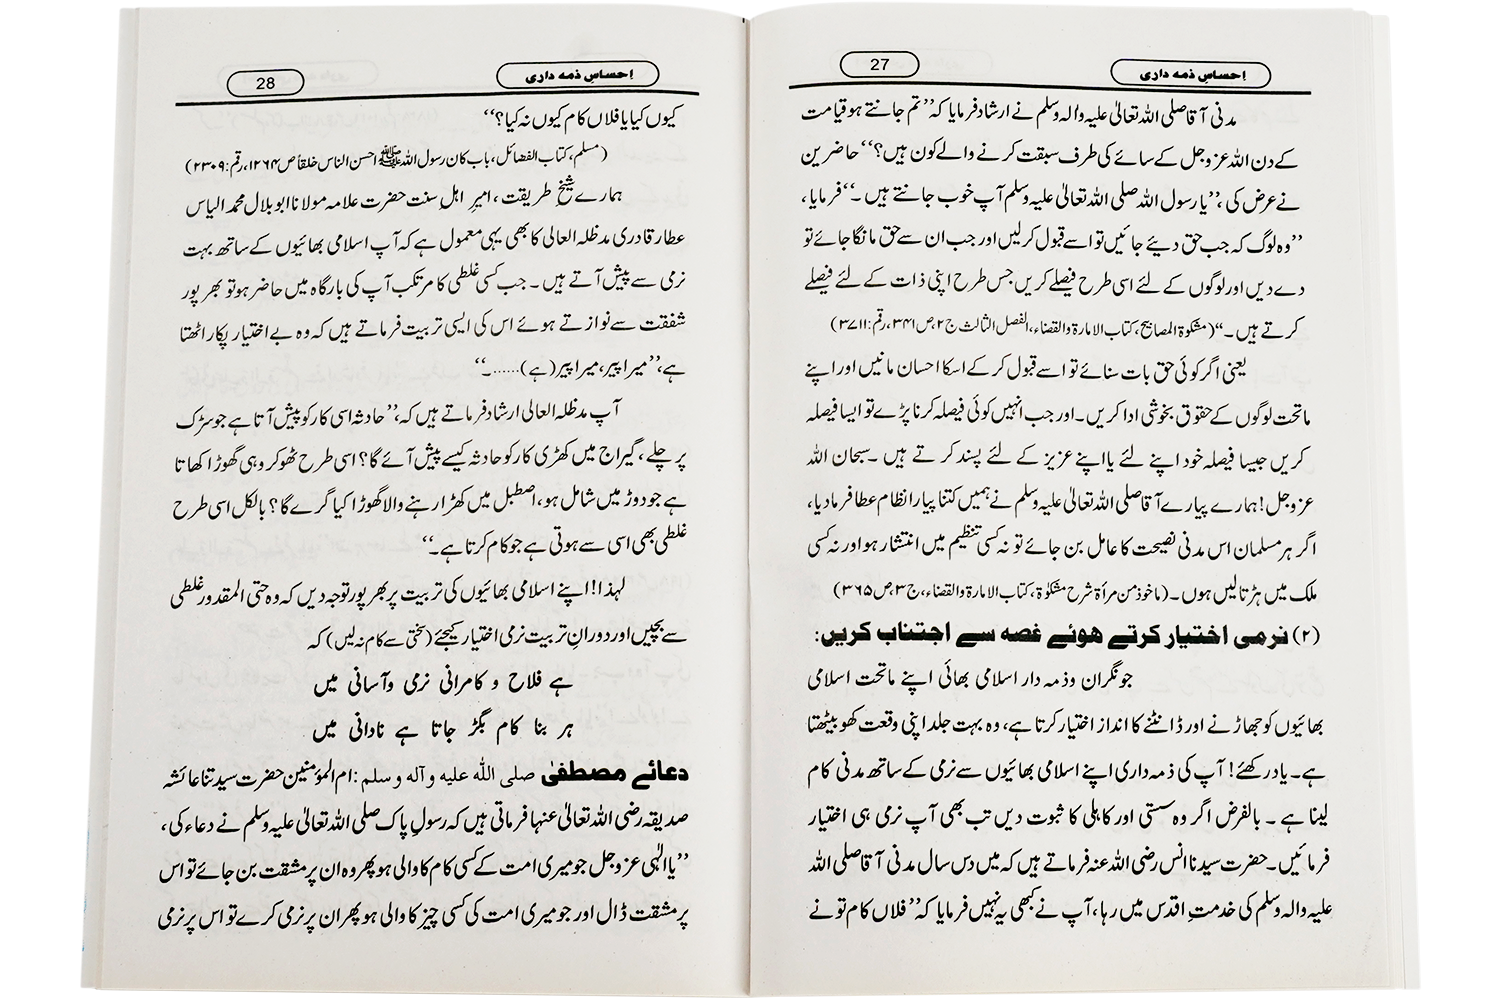 احساسِ ذمہ داری
27
مدنی آقا صلی اللہ تعالیٰ علیہ والہ وسلم نے ارشاد فرمایا کہ ’’تم جانتے ہو قیامت
کے دن اللہ عزوجل کے سائے کی طرف سبقت کرنے والے کون ہیں؟‘‘ حاضرین
نے عرض کی ،’’یا رسول اللہ صلی اللہ تعالیٰ علیہ وسلم آپ خوب جانتے ہیں ۔‘‘ فرمایا ،
’’وہ لوگ کہ جب حق دیئے جائیں تو اسے قبول کرلیں اور جب ان سے حق مانگا جائے تو
دے دیں اور لوگوں کے لئے اسی طرح فیصلے کریں جس طرح اپنی ذات کے لئے فیصلے
کرتے ہیں ۔‘‘ (مشکوۃ المصابیح، کتاب الامارۃ والقضاء، الفصل الثالث ج ۲، ص ۳۴۱، رقم: ۳۷۱۱)
یعنی اگر کوئی حق بات سنائے تو اسے قبول کر کے اسکا احسان مانیں اور اپنے
ماتحت لوگوں کے حقوق بخوشی ادا کریں ۔ اور جب انہیں کوئی فیصلہ کرنا پڑے تو ایسا فیصلہ
کریں جیسا فیصلہ خود اپنے لئے یا اپنے عزیز کے لئے پسند کرتے ہیں ۔سبحان اللہ
عزوجل! ہمارے پیارے آقا صلی اللہ تعالیٰ علیہ وسلم نے ہمیں کتنا پیارا نظام عطا فرمادیا ،
اگر ہر مسلمان اس مدنی نصیحت کا عامل بن جائے تو نہ کسی تنظیم میں انتشار ہو اور نہ کسی
ملک میں ہڑتالیں ہوں ۔ (ماخوذ من مرأۃ شرح مشکوٰۃ، کتاب الامارۃ والقضاء، ج ۳، ص ۳۶۵)
(۲) نرمی اختیار کرتے ہوئے غصہ سے اجتناب کریں:
جو نگران و ذمہ دار اسلامی بھائی اپنے ماتحت اسلامی
بھائیوں کو جھاڑنے اور ڈانٹنے کا انداز اختیار کرتا ہے، وہ بہت جلد اپنی وقعت کھو بیٹھتا
ہے۔ یاد رکھئے! آپ کی ذمہ داری اپنے اسلامی بھائیوں سے نرمی کے ساتھ مدنی کام
لینا ہے ۔ بالفرض اگر وہ سستی اور کاہلی کا ثبوت دیں تب بھی آپ نرمی ہی اختیار
فرمائیں۔ حضرت سیدنا انس رضی اللہ عنہ فرماتے ہیں کہ میں دس سال مدنی آقا صلی اللہ
علیہ والہ وسلم کی خدمتِ اقدس میں رہا، آپ نے کبھی یہ نہیں فرمایا کہ ’’فلاں کام تو نے
احساسِ ذمہ داری
28
کیوں کیا یا فلاں کام کیوں نہ کیا؟‘‘
(مسلم، کتاب الفضائل، باب کان رسول اللہ ﷺ احسن الناس خلقاً ص ۱۲۶۴، رقم: ۲۳۰۹)
ہمارے شیخِ طریقت ، امیرِ اہلِ سنت حضرت علامہ مولانا ابوبلال محمد الیاس
عطار قادری مدظلہ العالی کا بھی یہی معمول ہے کہ آپ اسلامی بھائیوں کے ساتھ بہت
نرمی سے پیش آتے ہیں ۔ جب کسی غلطی کا مرتکب آپ کی بارگاہ میں حاضر ہو تو بھرپور
شفقت سے نوازتے ہوئے اس کی ایسی تربیت فرماتے ہیں کہ وہ بے اختیار پکار اٹھتا
ہے، ’’میرا پیر، میرا پیر (ہے) ......۔‘‘
آپ مدظلہ العالی ارشاد فرماتے ہیں کہ، ’’حادثہ اسی کار کو پیش آتا ہے جو سڑک
پر چلے ، گیراج میں کھڑی کار کو حادثہ کیسے پیش آئے گا؟ اسی طرح ٹھوکر وہی گھوڑا کھاتا
ہے جو دوڑ میں شامل ہو، اصطبل میں کھڑا رہنے والا گھوڑا کیا گرے گا؟ بالکل اسی طرح
غلطی بھی اسی سے ہوتی ہے جو کام کرتا ہے ۔‘‘
لہذا! اپنے اسلامی بھائیوں کی تربیت پر بھرپور توجہ دیں کہ وہ حتی المقدور غلطی
سے بچیں اور دورانِ تربیت نرمی اختیار کیجئے (سختی سے کام نہ لیں) کہ
ہے فلاح و کامرانی نرمی و آسانی میں
ہر بنا کام بگڑ جاتا ہے نادانی میں
دعائے مصطفیٰ صلی اللہ علیہ و آلہ و سلم: ام المؤمنین حضرت سیدتنا عائشہ
صدیقہ رضی اللہ تعالیٰ عنہا فرماتی ہیں کہ رسولِ پاک صلی اللہ تعالیٰ علیہ وسلم نے دعاء کی ،
’’یا الٰہی عزوجل جو میری امت کے کسی کام کا والی ہو پھر وہ ان پر مشقت بن جائے تو اس
پر مشقت ڈال اور جو میری امت کی کسی چیز کا والی ہو پھر ان پر نرمی کرے تو اس پر نرمی